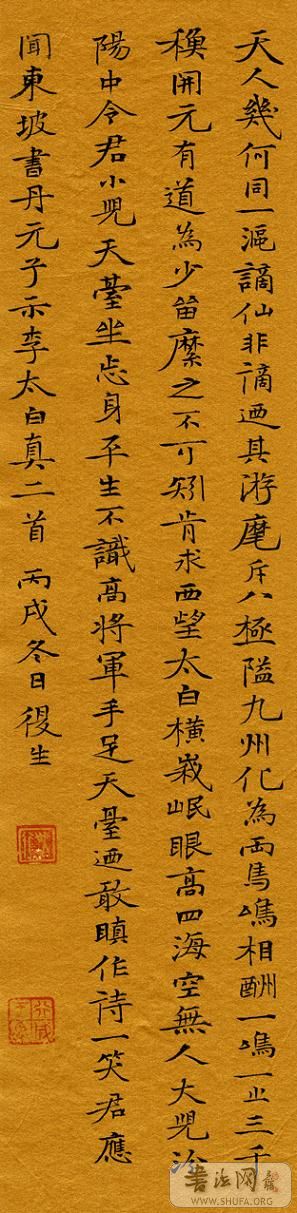 天人幾何同一漚謫仙非謫迺其游麾斥八極隘九州化為兩鳥鳴相酬一鳴一止三千
秋開元有道為少留縻之不可矧肯求西望太白橫峩岷眼高四海空無人大兒汾
陽中令君小兒天臺坐忘身平生不識高將軍手足天臺迺敢瞋作詩一笑君應
聞東坡書丹元子示李太白真二首 丙戌冬日復生
書法网
WWW.SHUFA.ORG